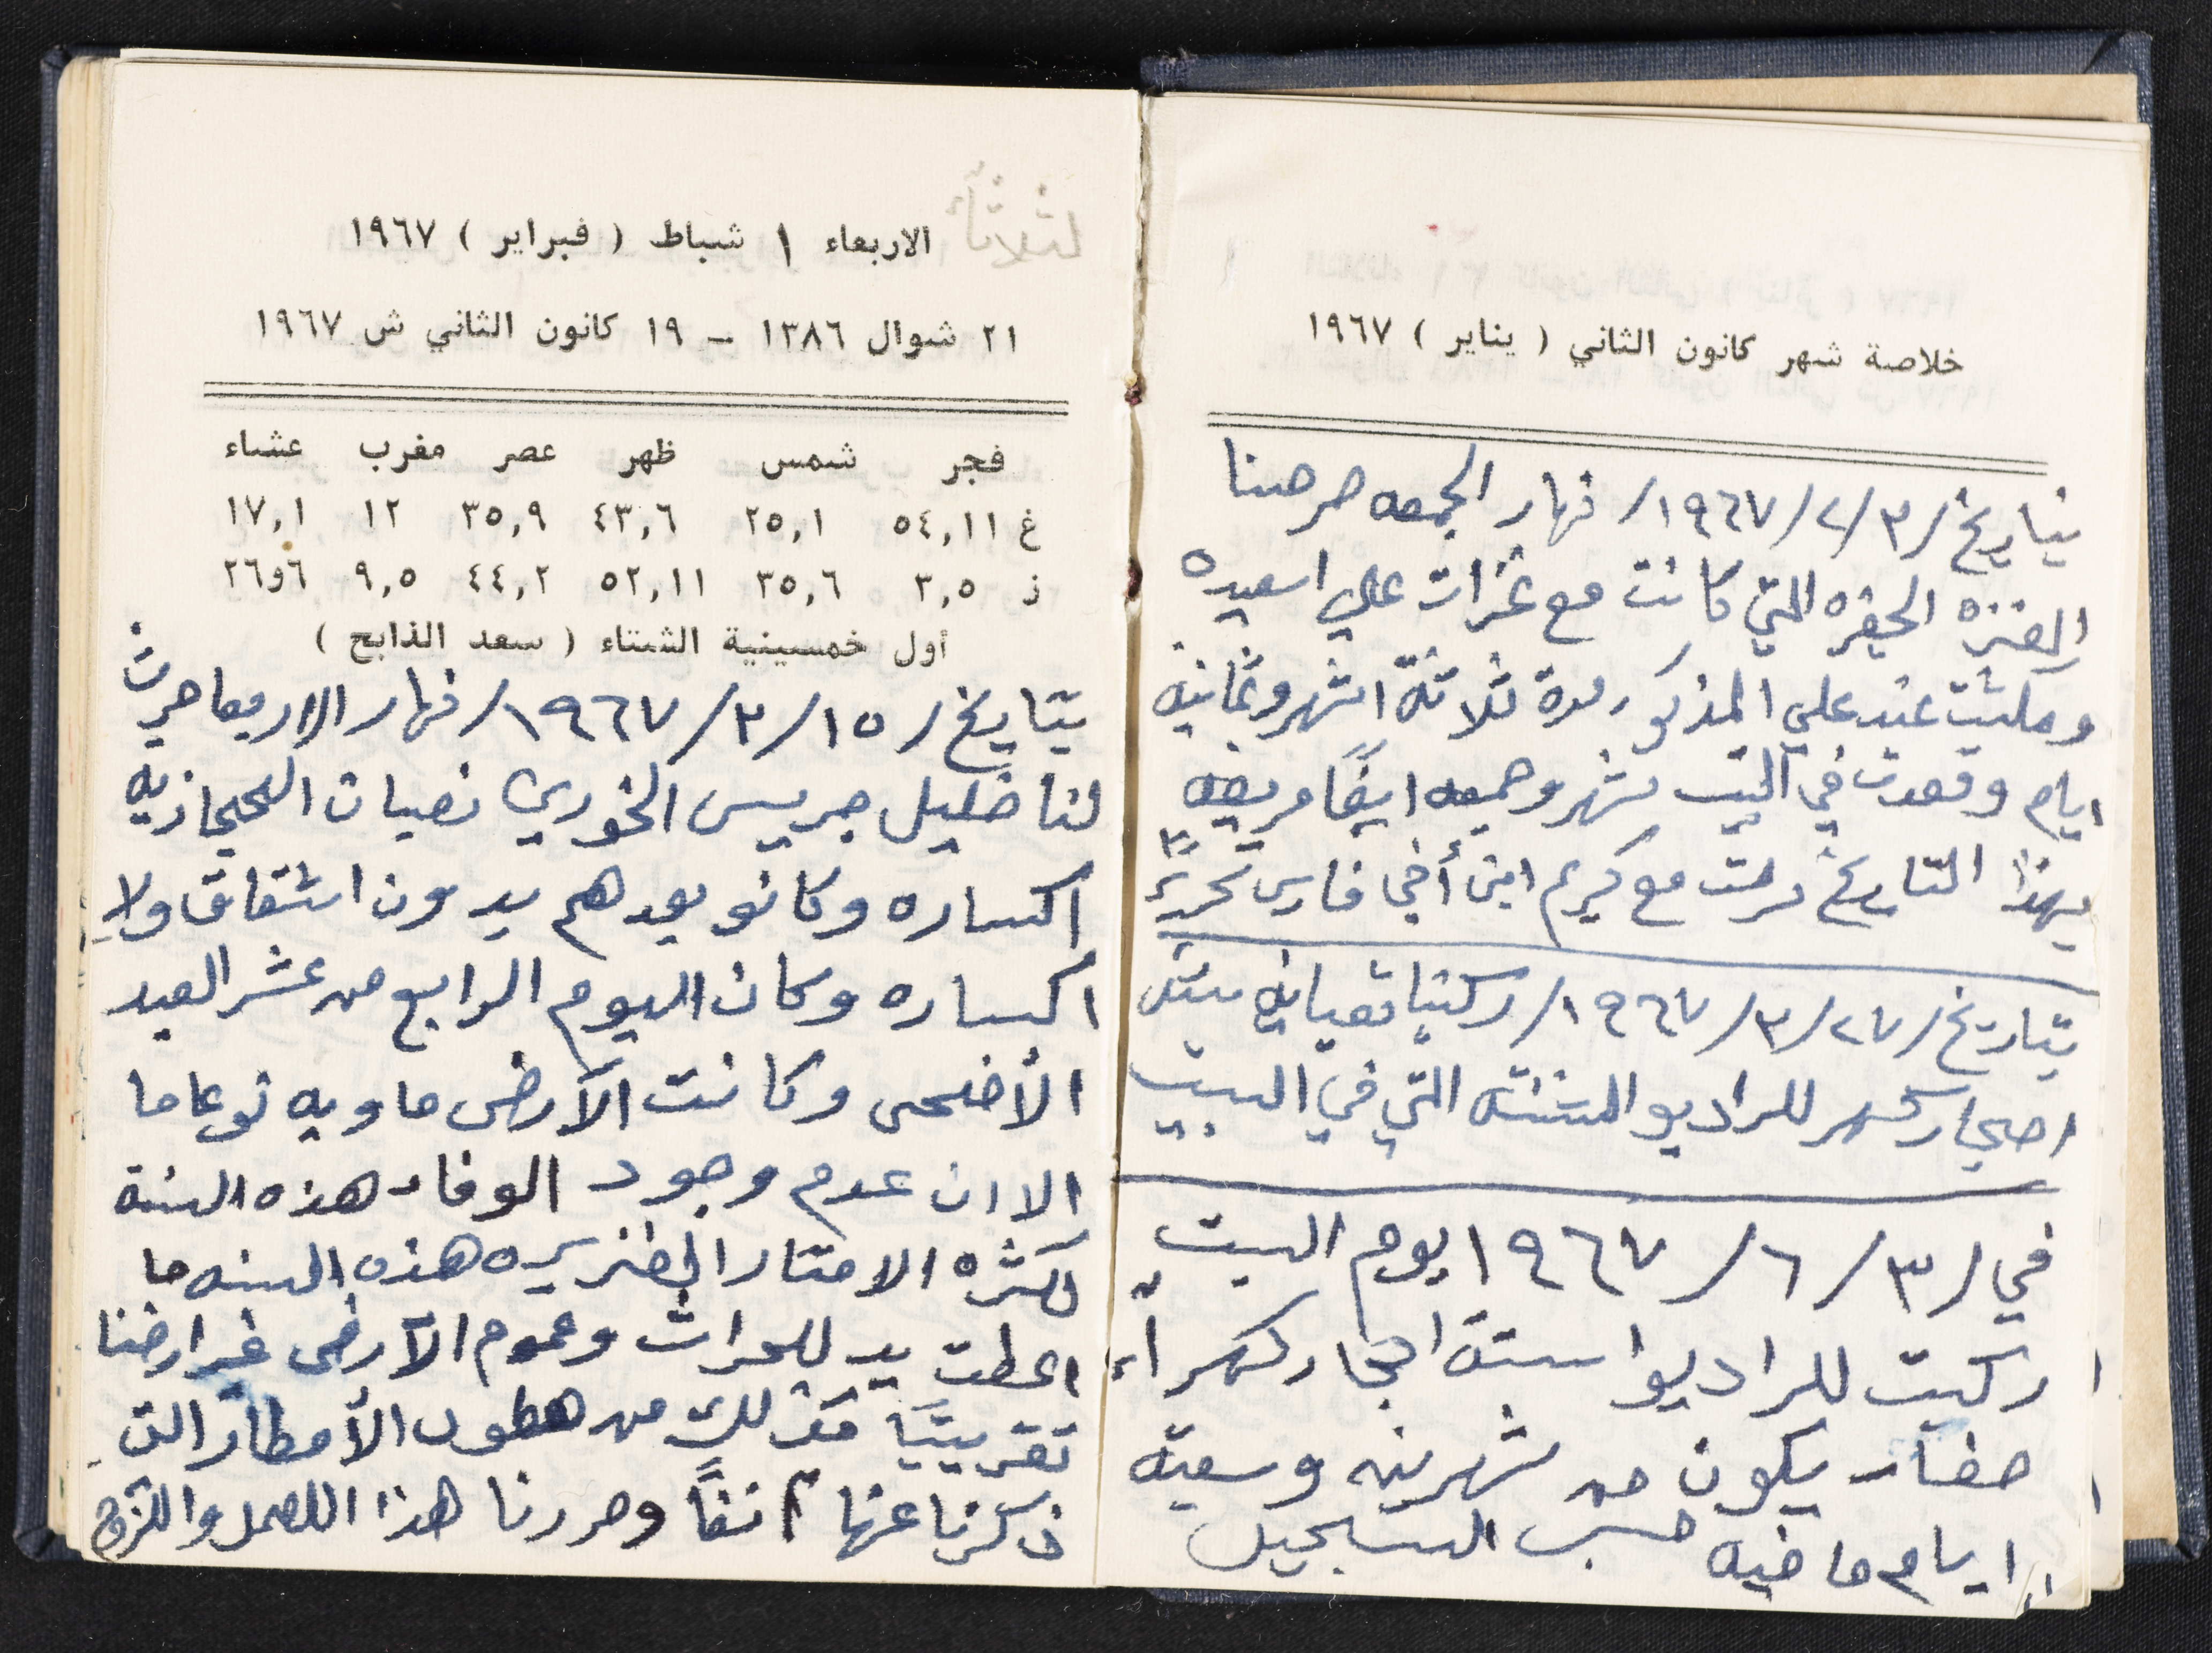 خلاصة شهر كانون الثاني ( يناير ) ١٩٦٧
بتاريخ /٣/٢/١٩٦٧/ نهار الجمعه
العنزه الحفره التي كانت مع عنزات علي اسعيده
ومكثت عند علي المذكور مدة ثلاثة اشهر وثمانية
ايام وقعدت في البيت شهر وجمعه ايضًا مريضه
بهذا التاريخ مع كريم ابن أخي فارس تحريرًا
بتاريخ /٢٧/٣/١٩٦٧/ ركبنا ستة
احجار كهر للراديو التي في البيت
في /٣/٦/١٩٦٧ يوم السبت
ركبت للراديوا ستة احجار كهرباء
صغار يكون من شهرين وسبعة
ايام ماضيه حسب التسجيل
ثلاثاء
الاربعاء ١ شباط ( فبراير ) ١٩٦٧
٢١ شوال ١٣٨٦ - ١٩ كانون الثاني ش ١٩٦٧
فجر شمس ظهر عصر مغرب عشاء
غ ٥٤,١١ ٢٥,١ ٤٣,٦ ٣٥,٩ ١٢ ١٧,١
ز ٣,٥ ٣٥,٦ ٥٢,١١ ٤٤,٢ ٩,٥ ٦و٢٦
أول خمسينية الشتاء ( سعد الذابح )
بتايخ /١٥/٣/١٩٦٧/ نهار الاربعا حرث
لنا خليل جريس الخوري نصبات الحجازيه
اكساره وكانو بعدهم بدون اشقاق ولا
اكساره وكان اليوم الرابع من عشر العيد
الأضحى وكانت الآرض ماويه نوعا ما
الا ان عدم وجود الوفار هذه السنة
لكثره الامتار الغزيره هذه السنه ما
اعطت يد للحراث وعموم الآرض غير ارضنا
تقريبًا كذلك من هطول الأمطار التي
ذكرنا عنها آنفًا وحررنا هذا للعمل واللزوم